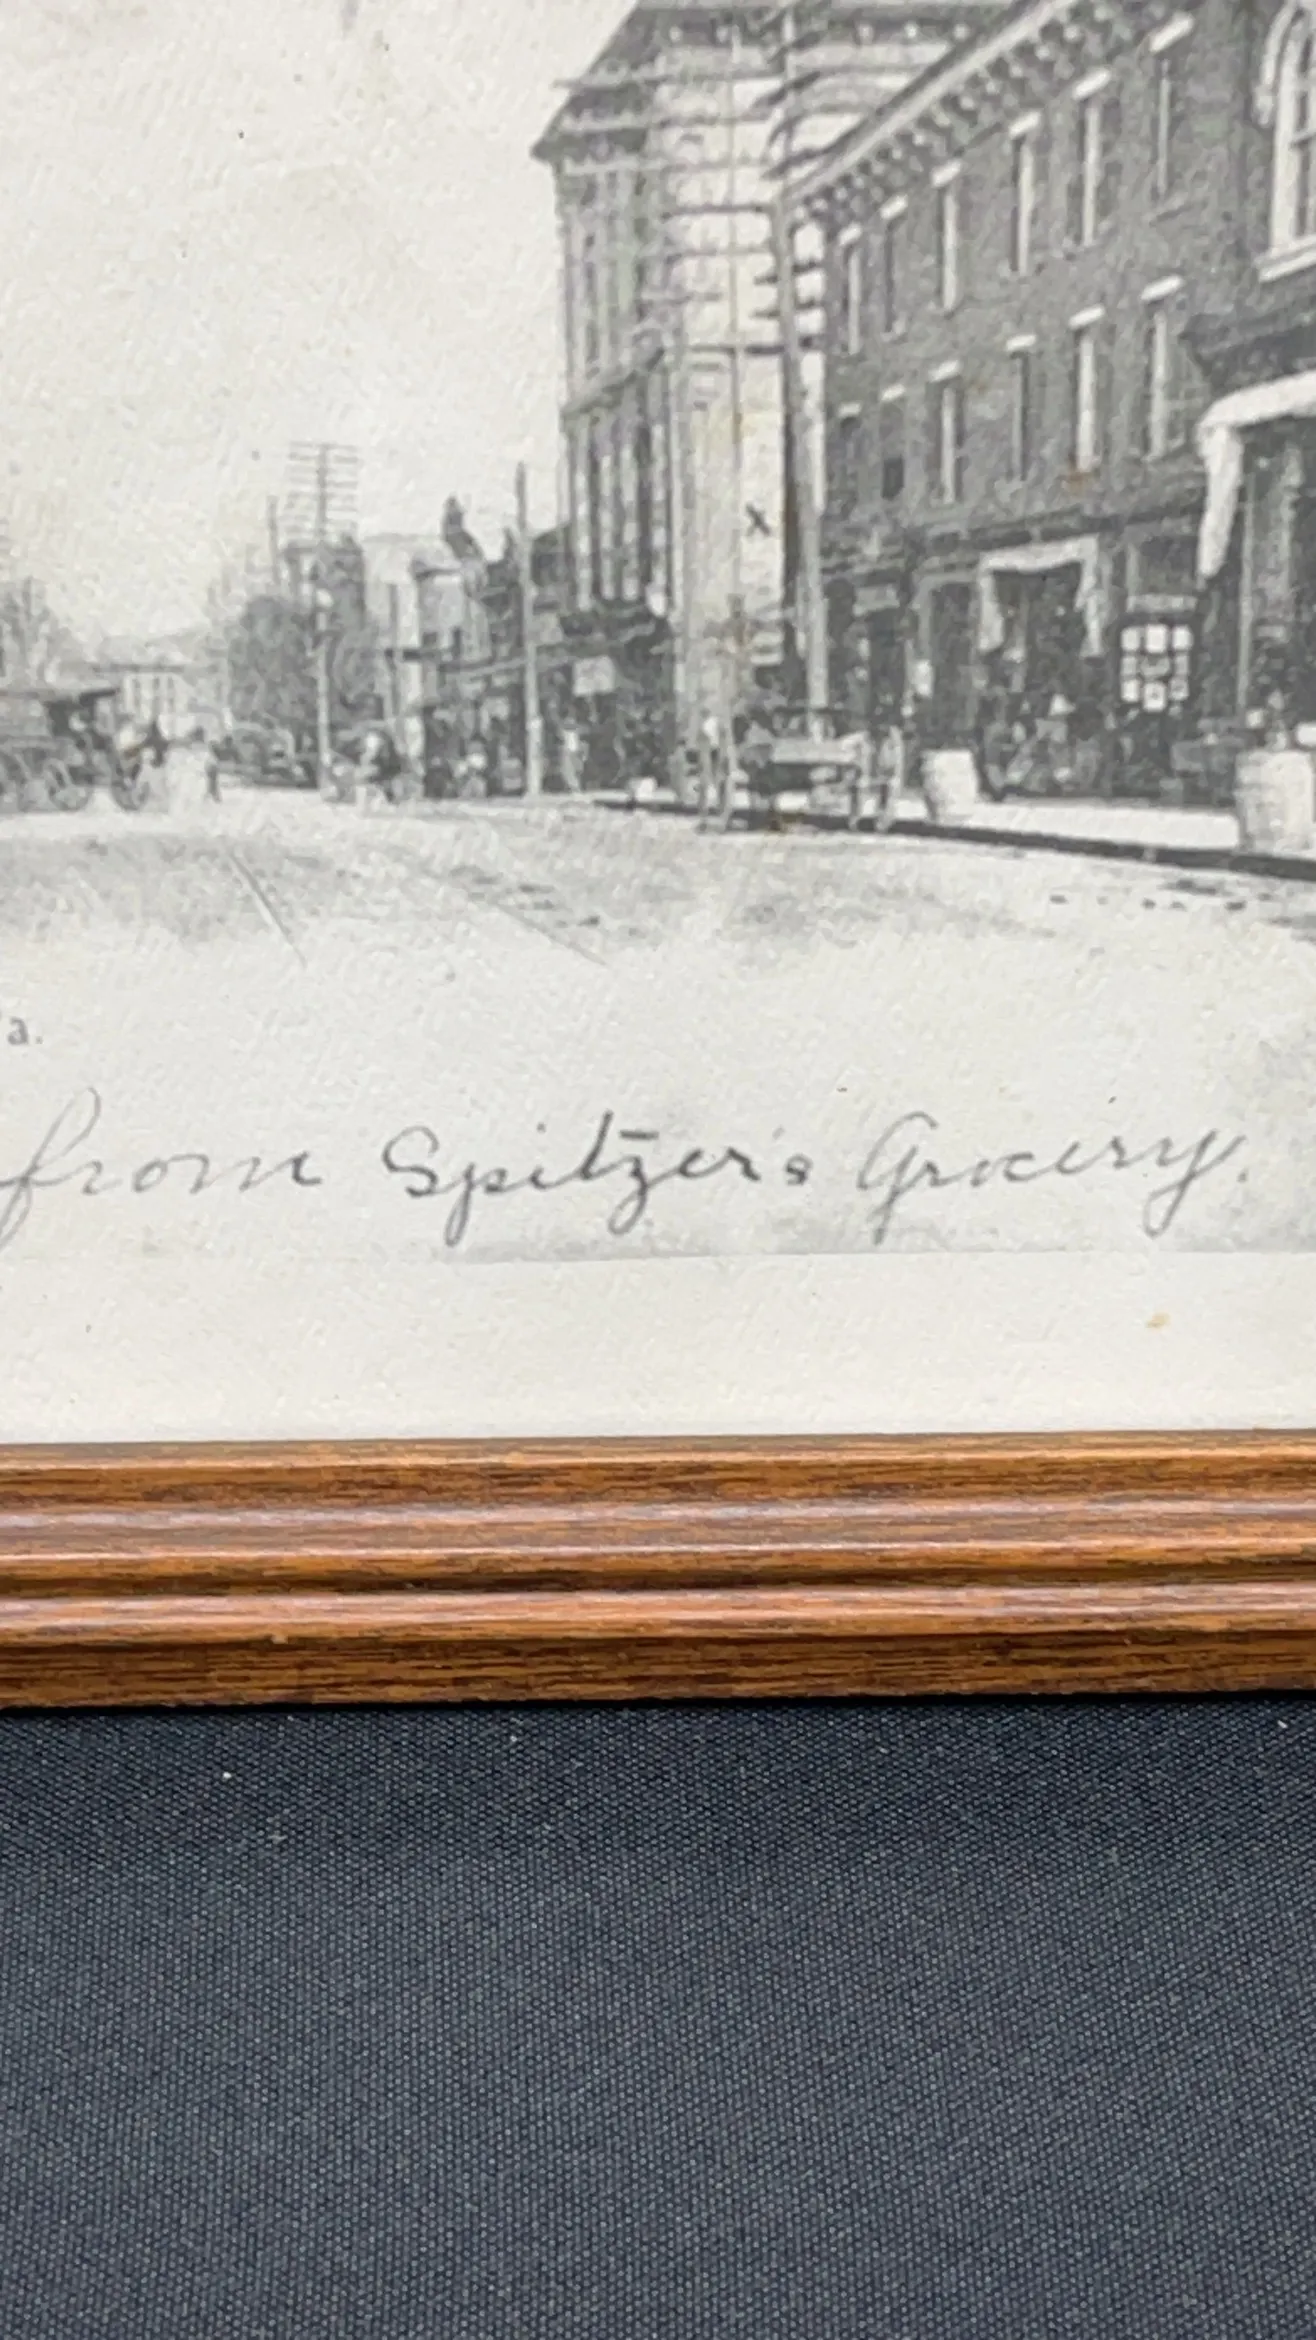 a.
from Spitzer's Grocery.